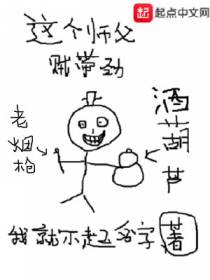 起点 起点中文网
这个师父
贼带劲
老烟枪
酒葫芦
我就不起名字 著